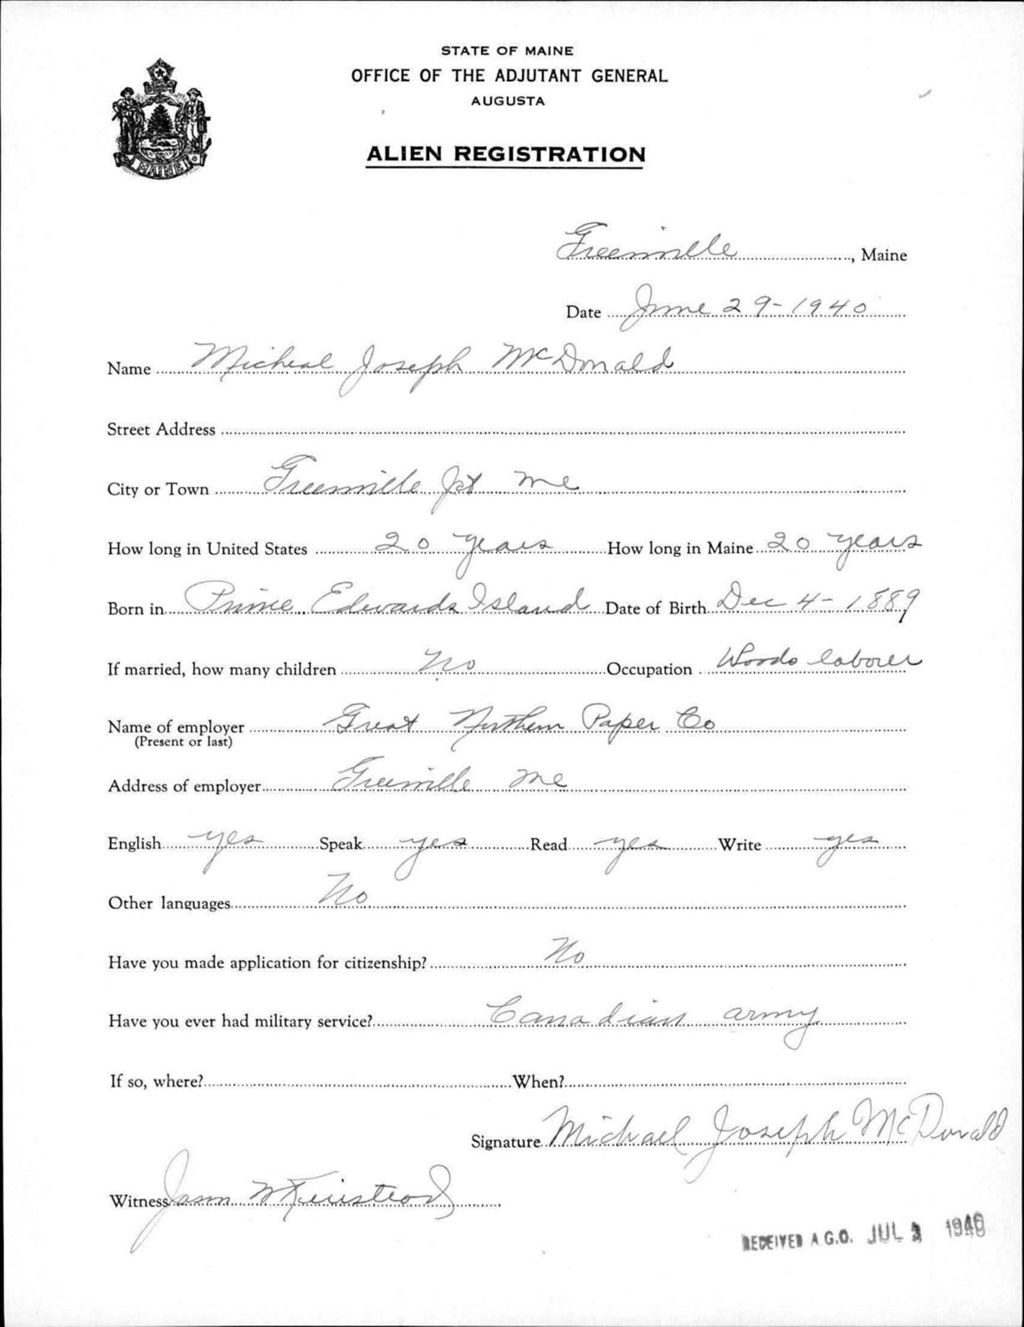 STATE OF MAINE
OFFICE OF THE ADJUTANT GENERAL
AUGUSTA
ALIEN REGISTRATION
MAINE
Greenville, Maine
Date June 29-1940
Name Micheal Joseph McDonald
Street Address
City or Town Greenville Jct Me
How long in United States 20 years How long in Maine 20 years
Born in Prince Edwards Island Date of Birth Dec 4-1889
If married, how many children No Occupation Woods laborer
Name of employer Great Northern Paper Co
(Present or last)
Address of employer Greenville Me
English yes Speak yes Read yes Write yes
Other languages No
Have you made application for citizenship? No
Have you ever had military service? Canadian army
If so, where? When?
Signature Michael Joseph McDonald
Witness
RECEIVED A.G.O. JUL 1940